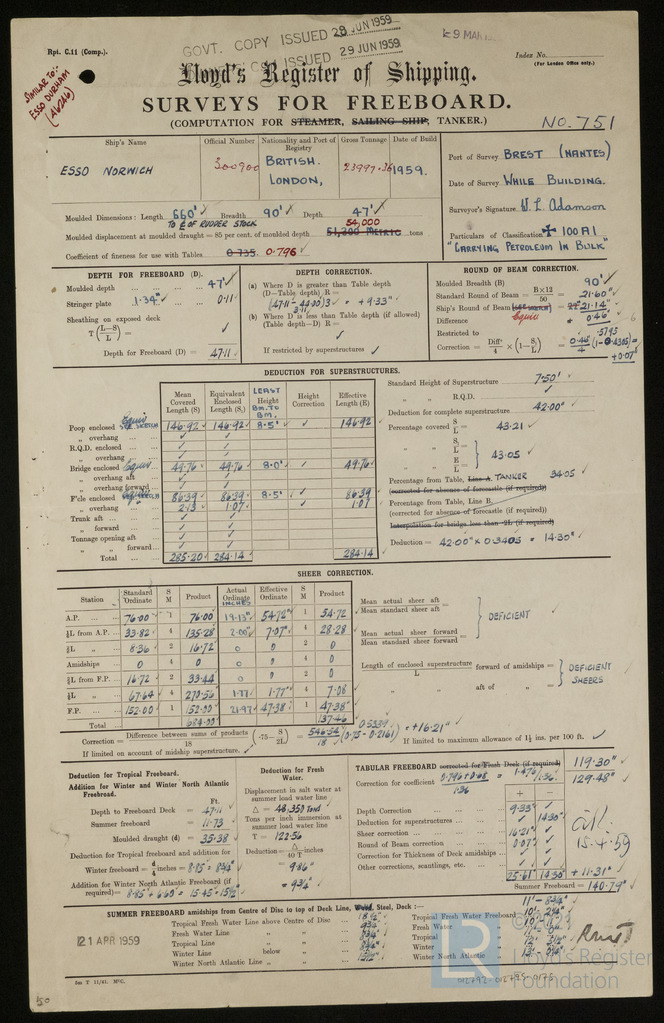 Rpt. C.11 (Comp.).
GOVT. COPY ISSUED 28 JUN 1959
ISSUED 29 JUN 1959
Index No.
(For London Office only.)
SIMILAR TO:-
ESSO DURHAM
(46246)
Lloyd's Register of Shipping.
SURVEYS FOR FREEBOARD.
(COMPUTATION FOR STEAMER, SAILING SHIP, TANKER.)
No. 751
Ship's Name
Official Number
Nationality and Port of Registry
Gross Tonnage
Date of Build
ESSO NORWICH
300900
BRITISH.
LONDON,
23997.36
1959.
Port of Survey BREST (NANTES)
Date of Survey WHILE BUILDING.
Surveyor's Signature W. L. Adamson
Particulars of Classification ✠ 100A1
"CARRYING PETROLEUM IN BULK"
Moulded Dimensions: Length 660' Breadth 90' Depth 47'
TO ℄ OF RUDDER STOCK
54,000
Moulded displacement at moulded draught = 85 per cent. of moulded depth 51,200 METRIC tons
Coefficient of fineness for use with Tables 0.735 0.796
DEPTH FOR FREEBOARD (D).
Moulded depth 47'
Stringer plate 1.34" 0.11
Sheathing on exposed deck
T(L−S/L) =
Depth for Freeboard (D) = 47.11
DEPTH CORRECTION.
(a) Where D is greater than Table depth
(D−Table depth) R =
(47.11 − 44.00)3 = +9.33"
3.11
(b) Where D is less than Table depth (if allowed)
(Table depth−D) R =
If restricted by superstructures
ROUND OF BEAM CORRECTION.
Moulded Breadth (B) 90'
Standard Round of Beam = B×12/50 = 21.60"
Ship's Round of Beam = 21.14"
Equiv
Difference 0.46"
Restricted to
Correction = Diff/4 × (1−S₁/L) = 0.46/4 (1−0.4305) = +0.07
.5795
DEDUCTION FOR SUPERSTRUCTURES.
Mean Covered Length (S)
Equivalent Enclosed Length (S₁)
LEAST Height BM. TO BM.
Height Correction
Effective Length (E)
Poop enclosed Equiv 146.92 146.92 8.5' 146.92
„ overhang
R.Q.D. enclosed
„ overhang
Bridge enclosed Equiv 49.76 49.76 8.0' 49.76
„ overhang aft
„ overhang forward
F'cle enclosed Equiv 86.39 86.39 8.5' 86.39
„ overhang 2.13 1.07 1.07
Trunk aft
„ forward
Tonnage opening aft
„ „ forward
Total 285.20 284.14 284.14
Standard Height of Superstructure 7.50'
„ „ R.Q.D.
Deduction for complete superstructure 42.00"
Percentage covered S/L = 43.21
„ „ S₁/L =
„ „ E/L = } 43.05
Percentage from Table, Line A. TANKER 34.05
(corrected for absence of forecastle (if required))
Percentage from Table, Line B.
(corrected for absence of forecastle (if required))
Interpolation for bridge less than ·2L (if required)
Deduction = 42.00" x 0.3405 = 14.30"
SHEER CORRECTION.
Station
Standard Ordinate
S M
Product
Actual Ordinate INCHES
Effective Ordinate
S M
Product
A.P. 76.00 1 76.00 19.13" 54.72" 1 54.72
⅙L from A.P. 33.82 4 135.28 2.00" 7.07" 4 28.28
⅓L „ 8.36 2 16.72 0 0 2 0
Amidships 0 4 0 0 0 4 0
⅓L from F.P. 16.72 2 33.44 0 0 2 0
⅙L „ 67.64 4 270.56 1.77 1.77" 4 7.08
F.P. 152.00 1 152.00 21.97 47.38 1 47.38
Total 684.00 137.46
Mean actual sheer aft =
Mean standard sheer aft
Mean actual sheer forward =
Mean standard sheer forward
} DEFICIENT
Length of enclosed superstructure/L forward of amidships =
„ „ aft of „ =
} DEFICIENT SHEERS
Correction = Difference between sums of products/18 (·75 − S/2L) = 546.54/18 (0.75 − 0.2161) = +16.21"
0.5339
If limited on account of midship superstructure.
If limited to maximum allowance of 1½ ins. per 100 ft.
Deduction for Tropical Freeboard.
Addition for Winter and Winter North Atlantic Freeboard.
Ft.
Depth to Freeboard Deck = 47.11
Summer freeboard = 11.73
Moulded draught (d) = 35.38
Deduction for Tropical freeboard and addition for Winter freeboard = d/4 inches = 8.85 = 8¾"
Addition for Winter North Atlantic Freeboard (if required) = 8.85 + 6.60 = 15.45 = 15½"
Deduction for Fresh Water.
Displacement in salt water at summer load water line
Δ = 48,350 TONS
Tons per inch immersion at summer load water line
T = 122.56
Deduction = Δ/40 T inches
= 9.86"
= 9¾"
TABULAR FREEBOARD corrected for Flush Deck (if required) 119.30"
Correction for coefficient 0.796 + 0.68/1.36 = 1.476/1.36 129.48"
+ −
Depth Correction 9.33
Deduction for superstructures 14.30
Sheer correction 16.21
Round of Beam correction 0.07
Correction for Thickness of Deck amidships
Other corrections, scantlings, etc.
25.61 14.30 +11.31"
Summer Freeboard = 140.79"
15.4.59
SUMMER FREEBOARD amidships from Centre of Disc to top of Deck Line, Wood, Steel, Deck :— 11' - 8¾"
Tropical Fresh Water Line above Centre of Disc 18½"
Fresh Water Line „ „ 9¾
Tropical Line „ „ 8¾
Winter Line below „ 8¾
Winter North Atlantic Line „ „ 15½"
Tropical Fresh Water Freeboard
Fresh Water „
Tropical „
Winter „
Winter North Atlantic „
21 APR 1959
LR
Lloyd's Register
Foundation
50